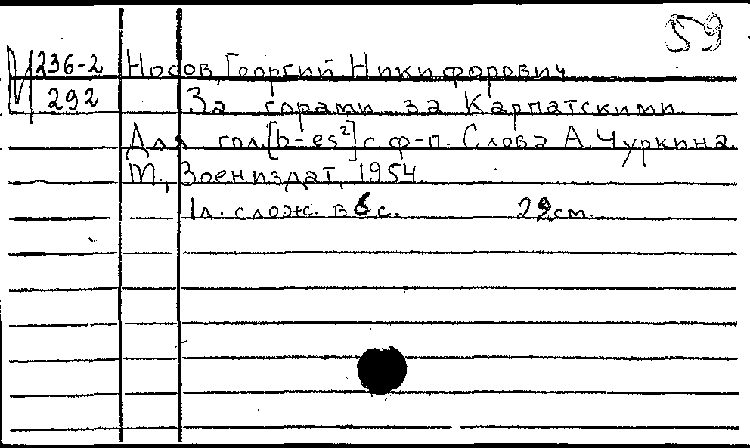 59
М 236-2 Носов, Георгий Никифорович
292 За горами, за Карпатскими.
Для гол. [h-es²] с ф-п. Слова А. Чуркина.
М., Воениздат, 1954.
1л. слож. в 6 с. 29 см.